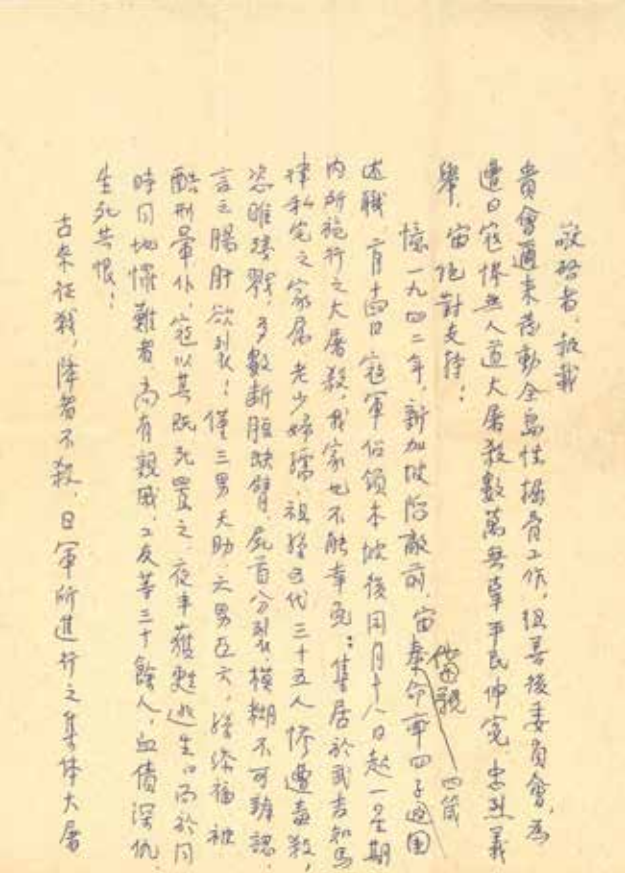 敬啓者，報載
貴會通來發動全島性掘骨工作，組善後委員會，為
遭日寇慘無人道大屠殺數萬無辜平民伸寃，忠烈義
舉，宙絕對支持！
憶一九四二年，新加坡陷敵前，宙奉命率四子返國
述職，二月十四日寇軍佔領本坡後同月十八日起一星期
內所施行之大屠殺，我家也不能幸免：集居於武吉知馬
律私宅之家屬老少婦孺，祖孫五代三十五人慘遭毒殺，
恣睢殘戮，多數斷脰缺臂，屍首分裂，模糊不可辨認，
言之腸肝欲裂！僅三男天助，六男亞六，孫添福被
酷刑暈仆，寇以其既死置之，夜半獲甦逃生，而於同
時同地罹難者尚有親戚、工友等三十餘人，血債深仇，
生死共恨！
古來征戰，降者不殺，日軍所進行之集体大屠